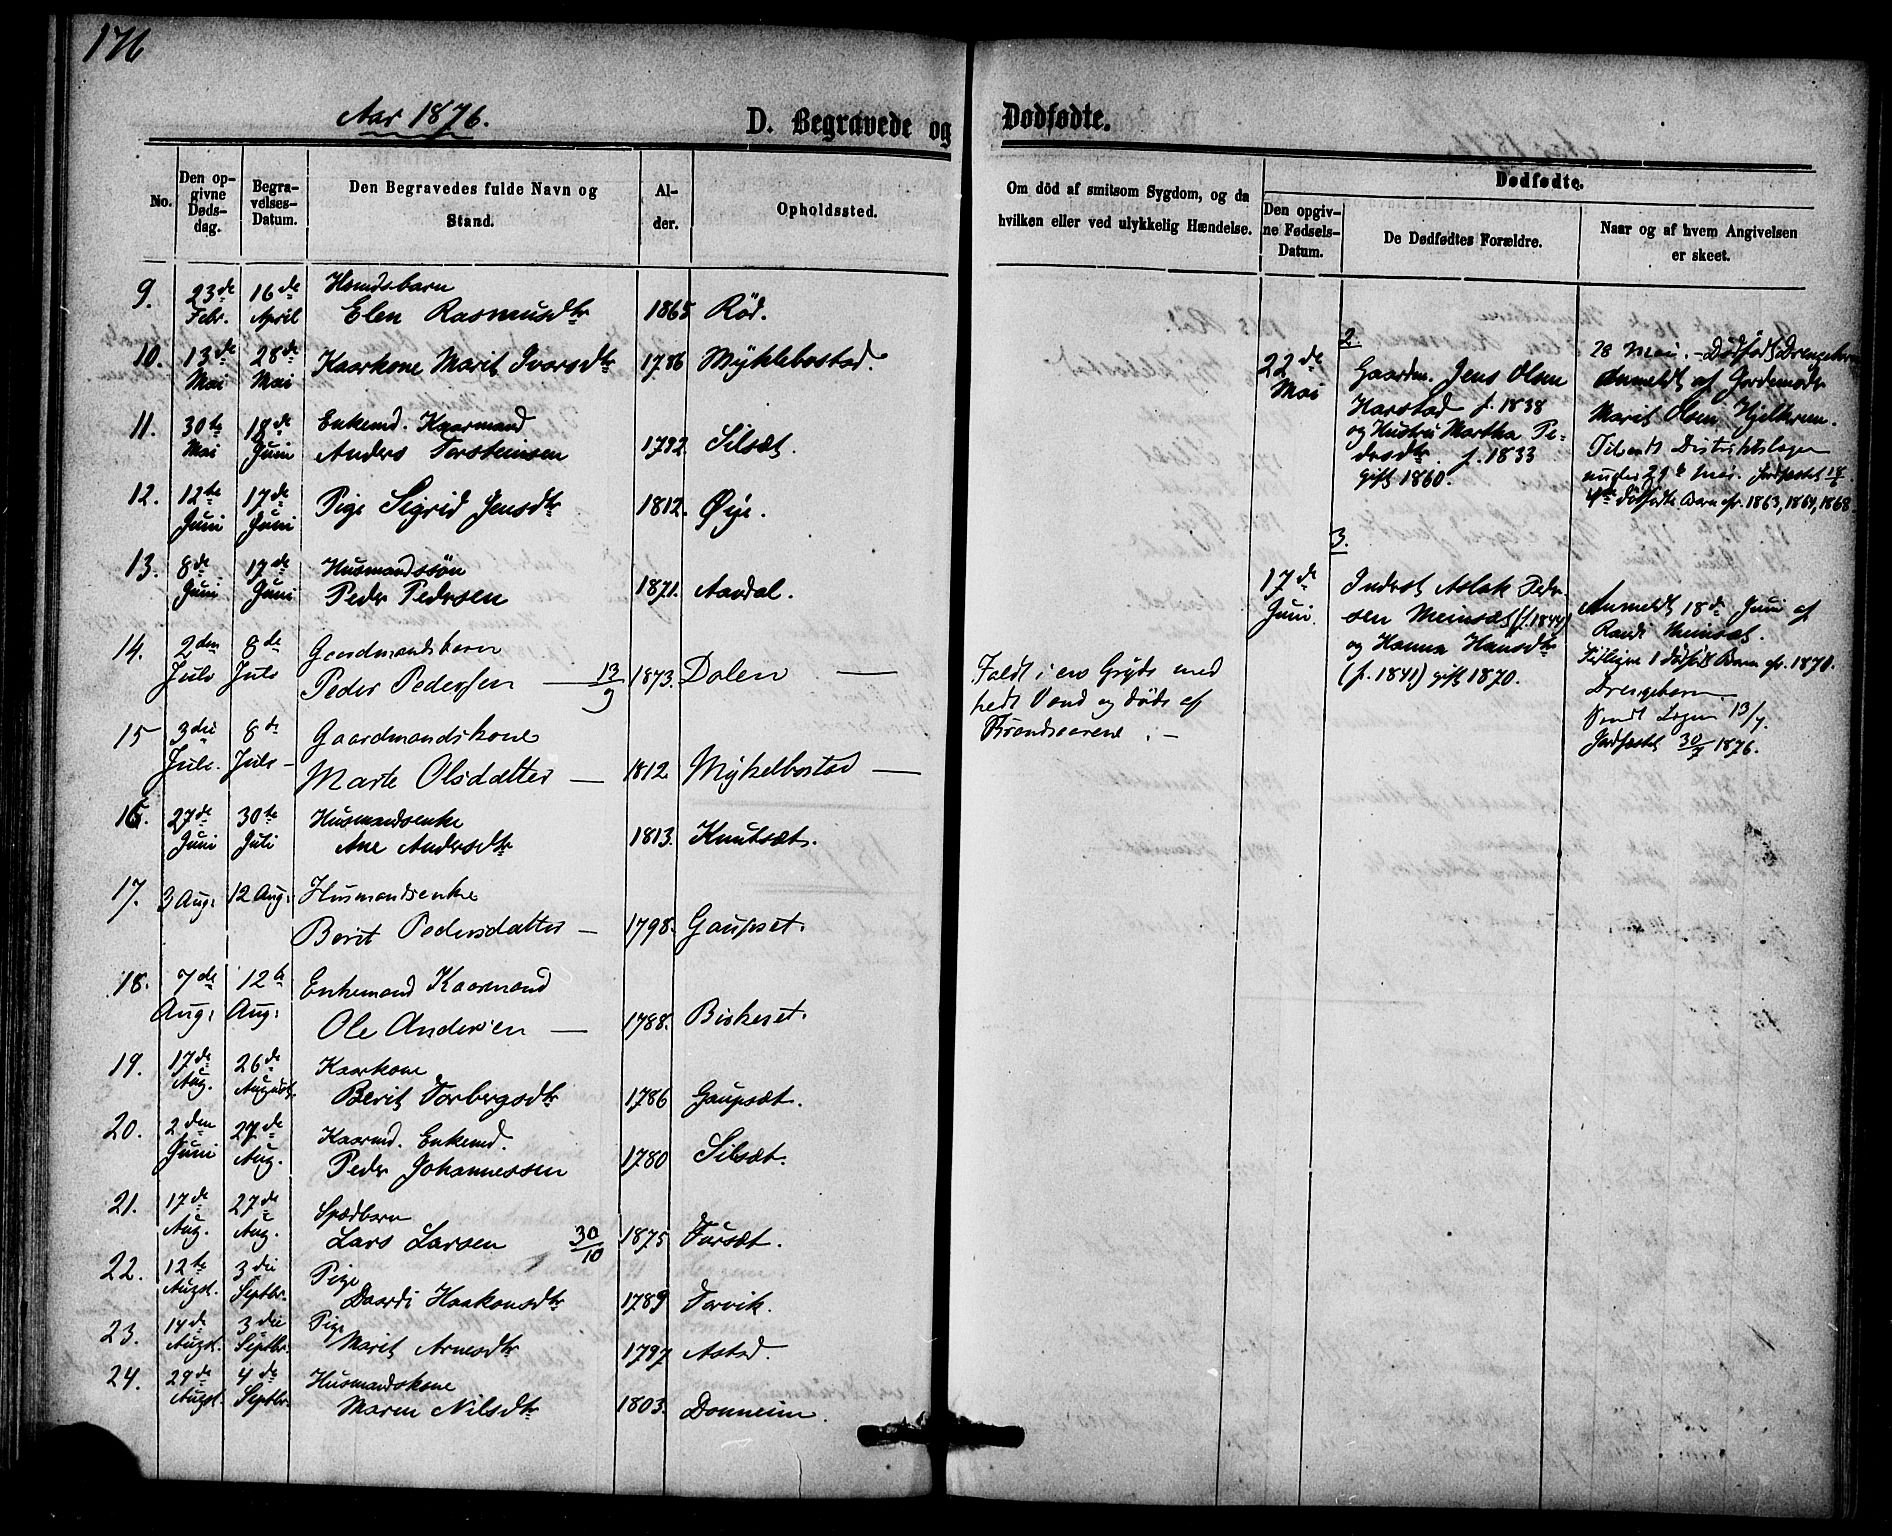 176
Aar 1876.
D. Begravede og Dødfødte.
No.
Den op-
givne
Døds-
dag.
Begra-
velses-
Datum.
Den Begravedes fulde Navn og
Stand.
Al-
der.
Opholdssted.
Om død af smitsom Sygdom, og da
hvilken eller ved ulykkelig Hændelse.
Dødfødte.
Den opgiv-
ne Fødsels-
Datum.
De Dødfødtes Forældre.
Naar og af hvem Angivelsen
er skeet.
9. 23de Febr. 16de April
Elen Rasmusdtr 1865 Rød.
10. 13de Mai 28de Mai Kaarkone Marit Ivarsdtr 1786 Myklebostad.
11. 30te Mai 18de Juni Enkemd. Kaarmand
Anders Torsteinsen 1792. Silsæt.
12. 12te Juni 17de Juni Pige Sigrid Jensdtr 1812. Øye.
13. 8de Juni 17de Juni Husmandssøn
Peder Pedersen 1871. Aardal.
14. 2den Juli 8de Juli Gaardmandsbarn
Peder Pederssen — 13/9 1873. Dalen —
15 3die Juli. 8de Juli – Gaardmandskone
Marte Olsdatter — 1812. Myklebostad —
16. 27de Juni 30te Juli Husmandsenke
Ane Andersdtr 1813. Knutsæt.
17. 3 Aug: 12 Aug: Husmandsenke
Berit Pedersdatter – 1798. Gaupset.
18. 7de Aug: 12te Aug: Enkemand Kaarmand
Ole Andersen — 1788. Birkeset.
19. 17de Aug. 26de August. Kaarkone
Berit Torbergsdtr 1786 Gaupsæt.
20. 2den Juni 27de Aug. Kaarmd. Enkemd.
Peder Johannessen 1780 Silsæt.
21. 17de Aug. 27de Aug. Spædbarn
Lars Larsen 30/10 1875 Tursæt.
22. 12te Augst. 3die Septbr. Pige
Daardi Haakonsdtr 1789 Torvik.
23. 14de Augst. 3die Septbr. Pige
Marit Arnesdtr 1797 Astad.
24. 29de Augst. 4de Septbr. Husmandskone
Maren Nilsdtr 1803. Donneim.
Faldt i en Gryde med
hedt Vand og døde af
Brandsaarene. –
2.
22de Mai
Gaardm. Jens Olsen
Harstad f. 1838
og Hustru Martha Pe-
dersdtr. f. 1833
gift 1860.
28 Mai. – Dødfødt Drengebarn
Anmeldt af Jordemoder
Marit Olsen Hjelkrem.
Tilsendt Distriktslægen
under 29de Mai. Jordfæstet 18/6.
4de dødfødte Barn efr. 1863, 1864, 1868
3.
17de Juni.
Inderst Aslak Peder-
sen Meinsæt (f. 1844)
og Hanna Hansdtr
(f. 1841) gift 1870.
Anmeldt 18de Juni af
Randi Meinsæt.
Tidligere 1 dødfødt Barn efr. 1870.
Drengebarn
Sendt Lægen 13/7.
Jordfæstet 30/7 1876.